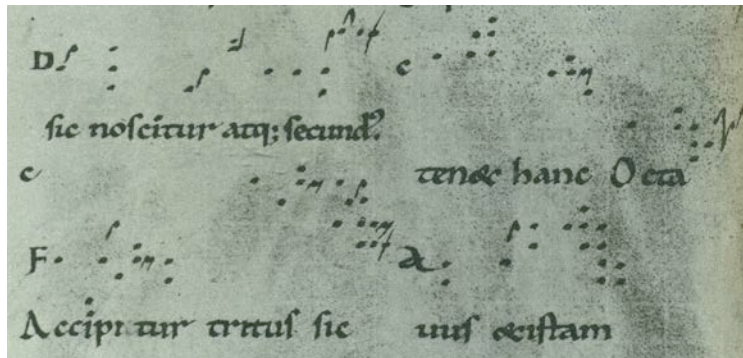 D
sic noscitur atq; secund᷒.
c
tenet hanc Octa
c
F
Accipitur tritus sic
a
uus & istam